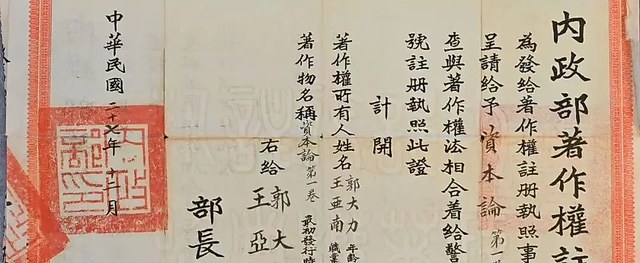 內政部著作權註
為發給著作權註冊執照事
呈請給予資本論第一
查與著作權法相合着給警
號註冊執照此證
計開
著作權所有人姓名郭大力王亞南年齡職業
著作物名稱資本論第一卷最初發行時
右給郭大王亞
部長
中華民國二十七年十二月